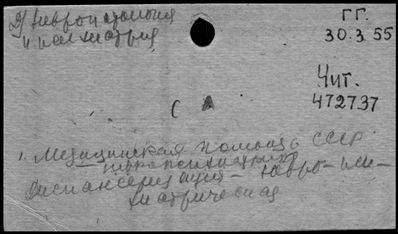 2) Невропатология
и психиатрия
ГГ.
30.3.55
Чит.
472737
С А
1. Медицинская помощь СССР
нейропсихиатрия
Диспансеризация - невро-пси-
хиатрическая